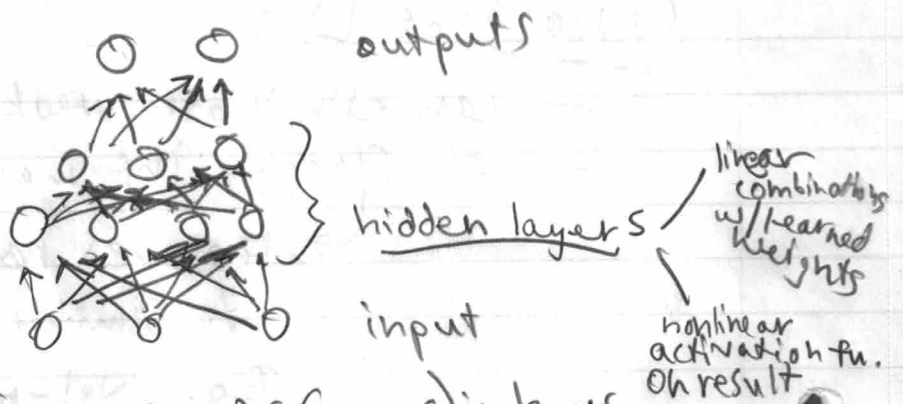 outputs
hidden layers
linear
combinations
w/learned
weights
input
nonlinear
activation fn.
on result